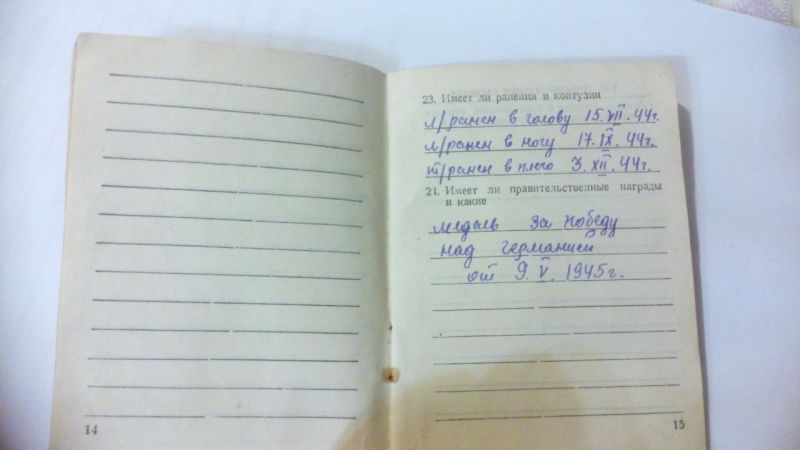 23. Имеет ли ранения и контузии
л/ранен в голову 15.VII.44г.
л/ранен в ногу 17.IX.44г.
т/ранен в плечо 3.XII.44г.
24. Имеет ли правительственные награды
и какие
медаль за победу
над Германией
от 9.V.1945г.
14
15